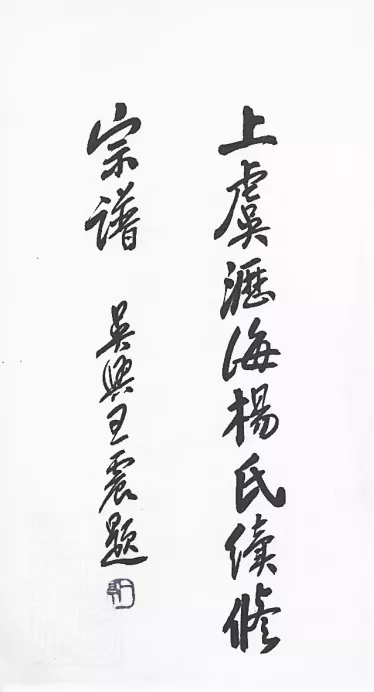 上虞瀝海楊氏續修
宗譜
吳興王震題